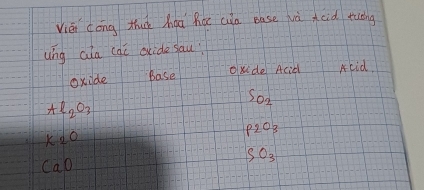 Viết công thức hoá học của base và acid tương
ứng của các oxide sau:
oxide Base oxide Acid Acid
Al2O3 SO2
K2O P2O3
CaO SO3